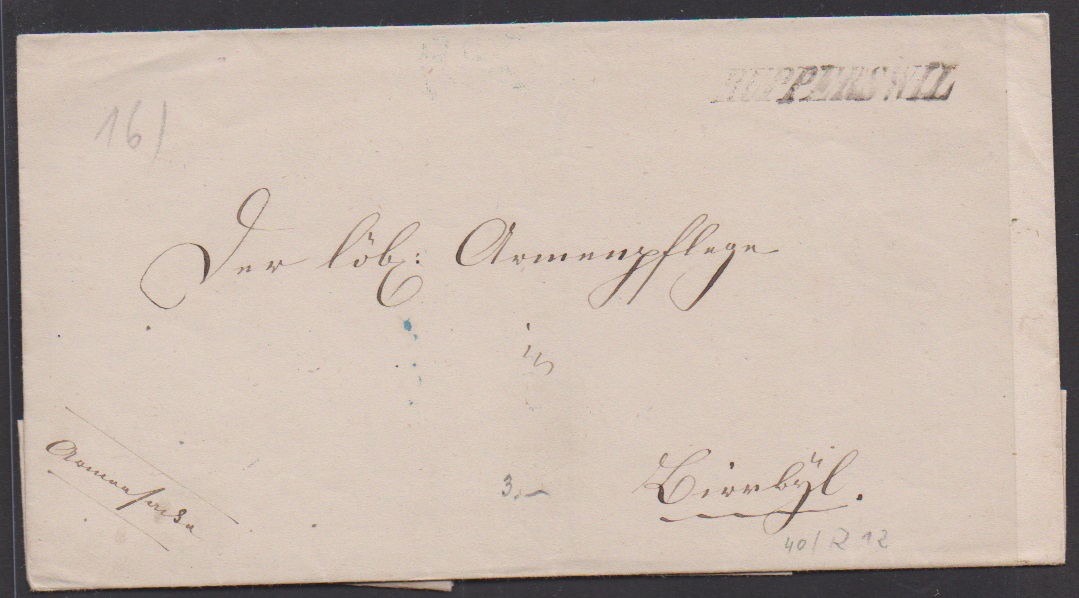 RUPPERSWIL
16/
Der löb: Armenpflege
in
Birrbÿl.
Armensache
3.-
40/R 12